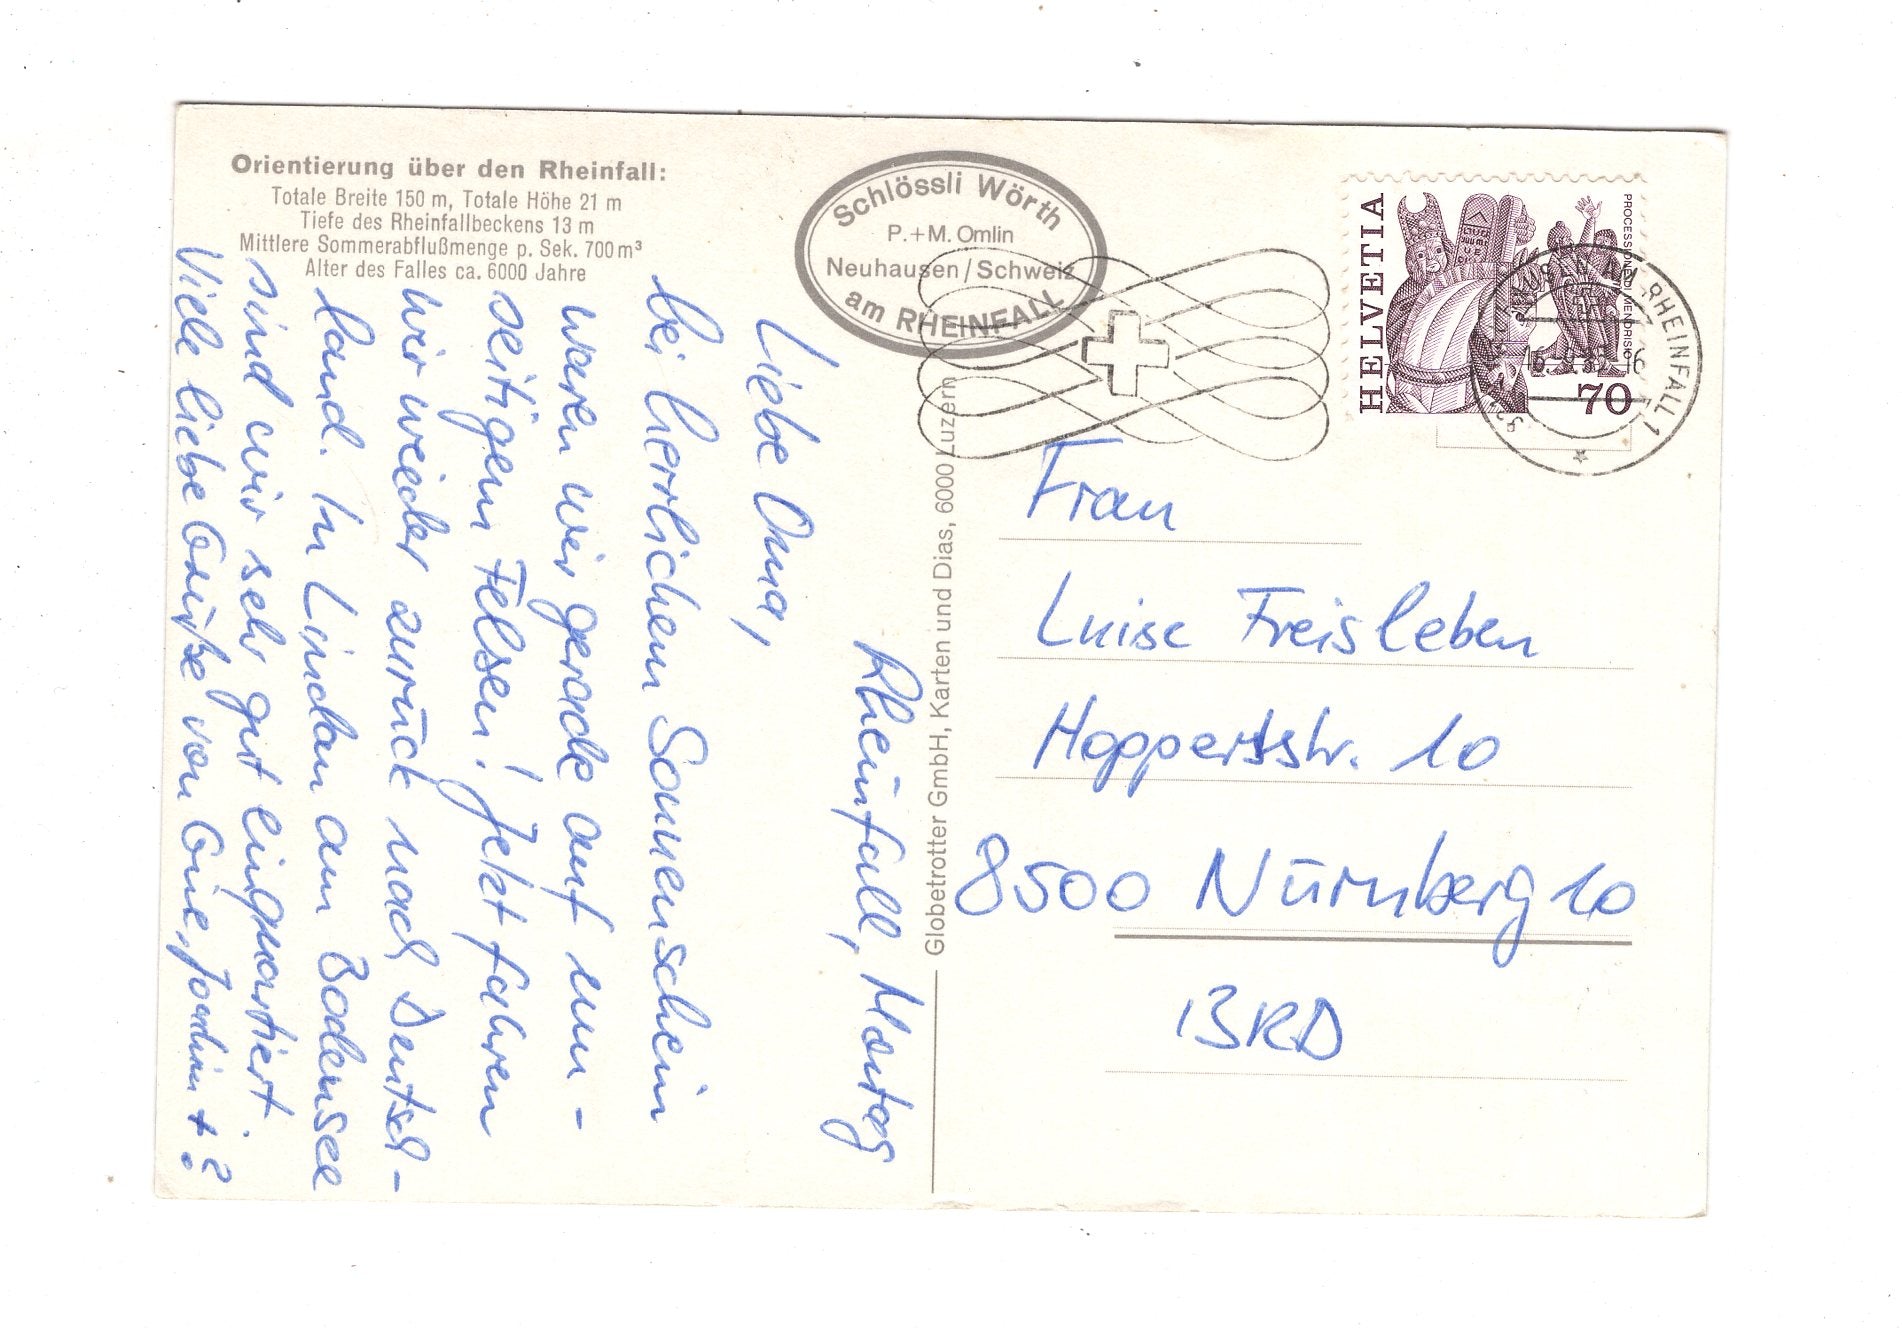 Orientierung über den Rheinfall:
Totale Breite 150 m, Totale Höhe 21 m
Tiefe des Rheinfallbeckens 13 m
Mittlere Sommerabflußmenge p. Sek. 700 m³
Alter des Falles ca. 6000 Jahre
Schlössli Wörth
P.+M. Omlin
Neuhausen/Schweiz
am RHEINFALL
HELVETIA
PROCESSIONE DI MENDRISIO
70
RHEINFALL 1
Rheinfall, Montag
Liebe Oma,
bei herrlichem Sonnenschein
waren wir gerade auf um-
seitigem Felsen! Jetzt fahren
wir wieder zurück nach Deutsch-
land. In Lindau am Bodensee
sind wir sehr gut einquartiert.
Viele liebe Grüße von Joachim + ?
Globetrotter GmbH, Karten und Dias, 6000 Luzern
Frau
Luise Freisleben
Hoppertsstr. 10
8500 Nürnberg 10
BRD